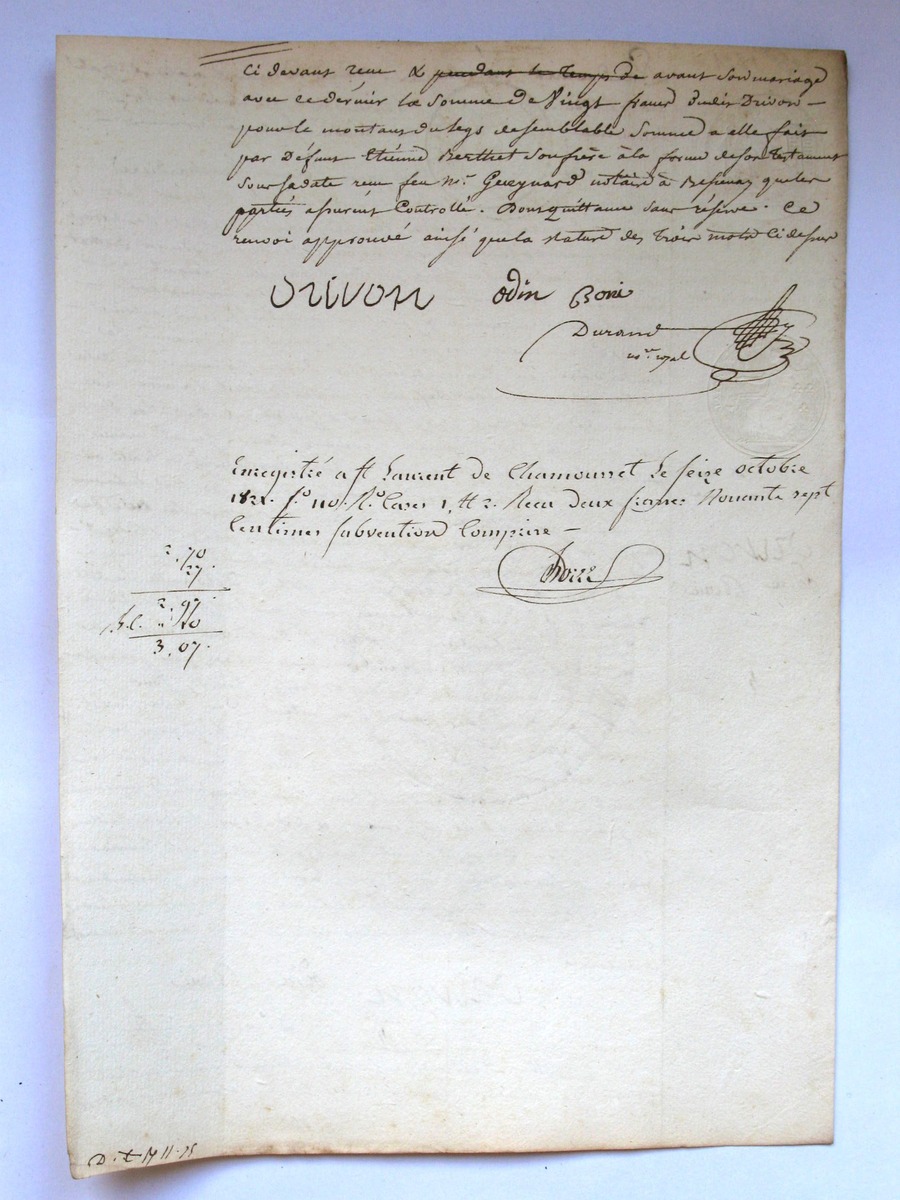 ci devant reçu & pendant le temps de avant son mariage
avec ce dernier la somme de vingt francs dudit Drivon
pour le montant du legs de semblable somme a elle fait
par Défunt Etienne Berthet son frère à la forme de son testament
sous sa date reçu feu Me. notaire à Bessenay que les
parties assurent Controllé. Dont quittance sans réserve. Ce
renvoi approuvé ainsi que la rature des trois mots ci dessus
DRIVON Odin
Durand
nre. royal
Enregistré a St Laurent de Chamousset le seize octobre
fo. 110. Ro. Cases 1, et 2. Recu deux francs Nonante sept
Centimes subvention Comprise —
2,70
27
2,97
10
3,07